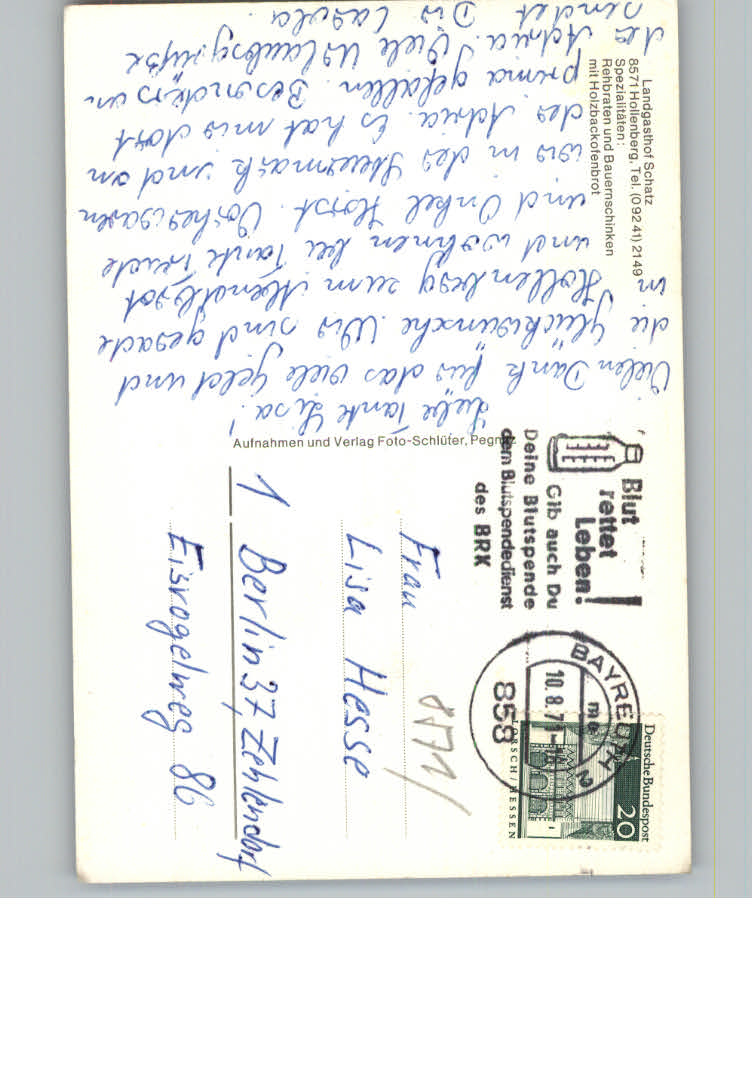 Landgasthof Schatz
8571 Hollenberg, Tel. (0 92 41) 2149
Spezialitäten:
Rehbraten und Bauernschinken
mit Holzbackofenbrot
Liebe Tante Lisa!
Vielen Dank für das viele Geld und
die Glückwünsche. Wir sind gerade
in Hollenberg zum Abendbrot
und wohnen bei Tante Trude
und Onkel Horst. Vorher waren
wir in der Steiermark und an
der Adria. Es hat mir dort
prima gefallen. Besonders an
der Adria. Viele Urlaubsgrüße
sendet Dir Carola
Aufnahmen und Verlag Foto-Schlüter, Pegnitz
Blut
rettet
Leben!
Gib auch Du
Deine Blutspende
dem Blutspendedienst
des BRK
BAYREUTH 2
mc
10.8.71-18
858
Deutsche Bundespost
20
LORSCH/HESSEN
8571/
Frau
Lisa Hesse
1 Berlin 37, Zehlendorf
Eisvogelweg 86